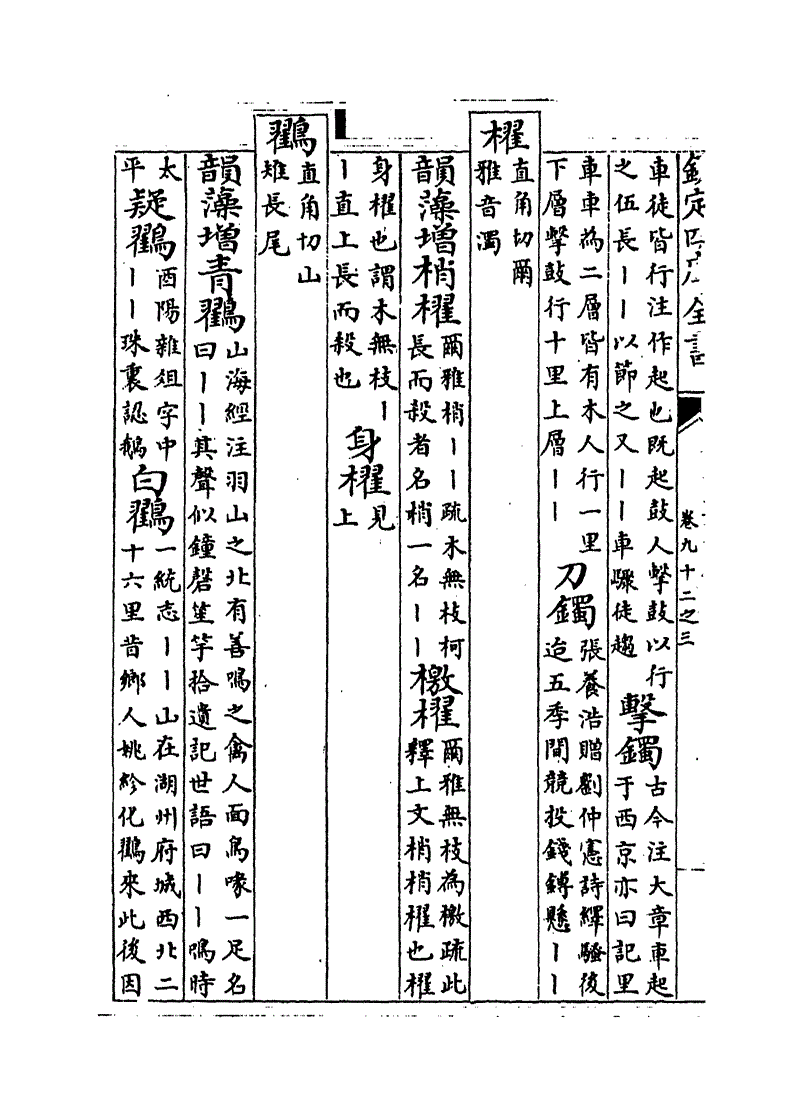 欽定四庫全書
卷九十二之三
車徒皆行注作起也既起鼓人擊鼓以行
之伍長丨丨以節之又丨丨車驟徒趨
擊鐲
古今注大章車起
于西京亦曰記里
車車為二層皆有木人行一里
下層擊鼓行十里上層丨丨
刀鐲
張養浩贈劉仲憲詩繹騷後
迨五季間競投錢鎛懸丨丨
櫂
直角切爾
雅音濁
韻藻增梢櫂
爾雅梢丨丨疏木無枝柯
長而殺者名梢一名丨丨
檄櫂
爾雅無枝為檄疏此
釋上文梢梢櫂也櫂
身櫂也謂木無枝丨
丨直上長而殺也
身櫂
見
上
鸐
直角切山
雉長尾
韻藻增青鸐
山海經注羽山之北有善鳴之禽人面鳥喙一足名
曰丨丨其聲似鐘磬笙竽拾遺記世語曰丨丨鳴時
太
平
疑鸐
酉陽雜俎字中
丨丨珠裏認鵝
白鸐
一統志丨丨山在湖州府城西北二
十六里昔鄉人姚紾化鸐來此後因